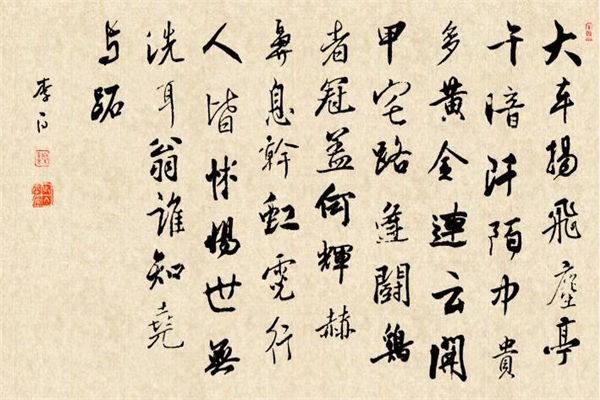 大车揚飛塵亭
午暗阡陌中貴
多黄金連云開
甲宅路逢闘鷄
者冠蓋何輝赫
鼻息幹虹霓行
人皆怵惕世無
洗耳翁誰知堯
与跖
李白